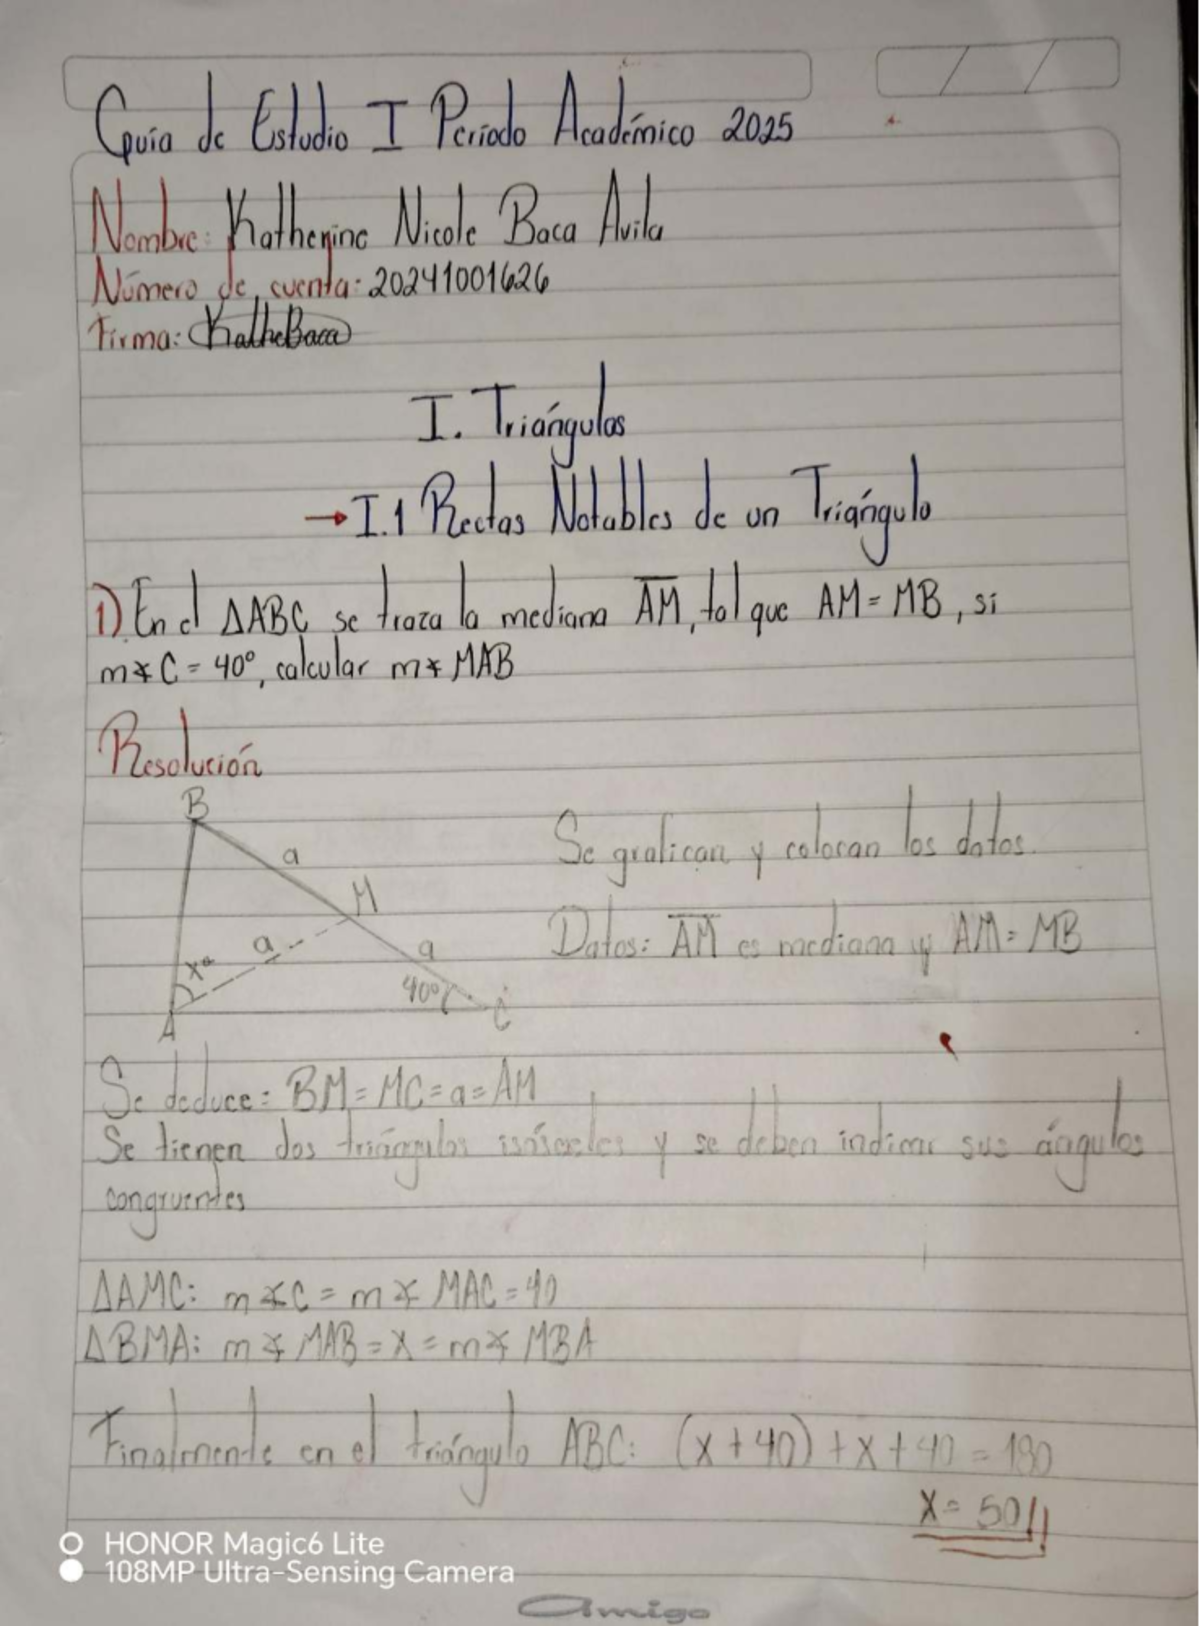 Guía de Estudio I Período Académico 2025
Nombre: Katherine Nicole Baca Avila
Número de cuenta: 20241001626
Firma: KatheBaca
I. Triángulos
→ I.1 Rectas Notables de un Triángulo
1) En el ΔABC se traza la mediana A̅M̅, tal que AM = MB, si
m∡C = 40°, calcular m∡MAB
Resolución
B
a
Se grafican y colocan los datos.
M
a
a
Datos: A̅M̅ es mediana y AM = MB
x°
40°
A
C
Se deduce: BM = MC = a = AM
Se tienen dos triángulos isósceles y se deben indicar sus ángulos
congruentes
ΔAMC: m∡C = m∡MAC = 40
ΔBMA: m∡MAB = x = m∡MBA
Finalmente en el triángulo ABC: (x + 40) + x + 40 = 180
x = 50//
HONOR Magic6 Lite
108MP Ultra-Sensing Camera
amigo